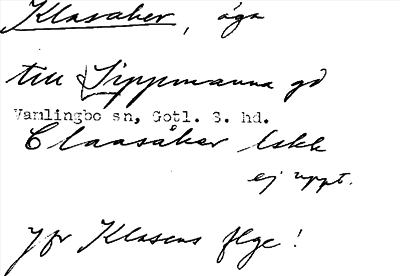 Klasåker, äga
till Sippmanna gd
Vamlingbo sn, Gotl. S. hd.
Claasåker lskk
ej uppt.
Jfr Klasens flge!